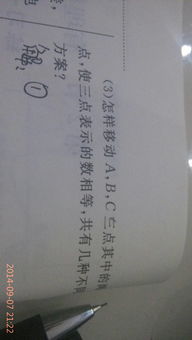 (3)怎样移动A,B,C三点其中的
点,使三点表示的数相等,共有几种不同
方案?
解: ①
2014-09-07 21:22